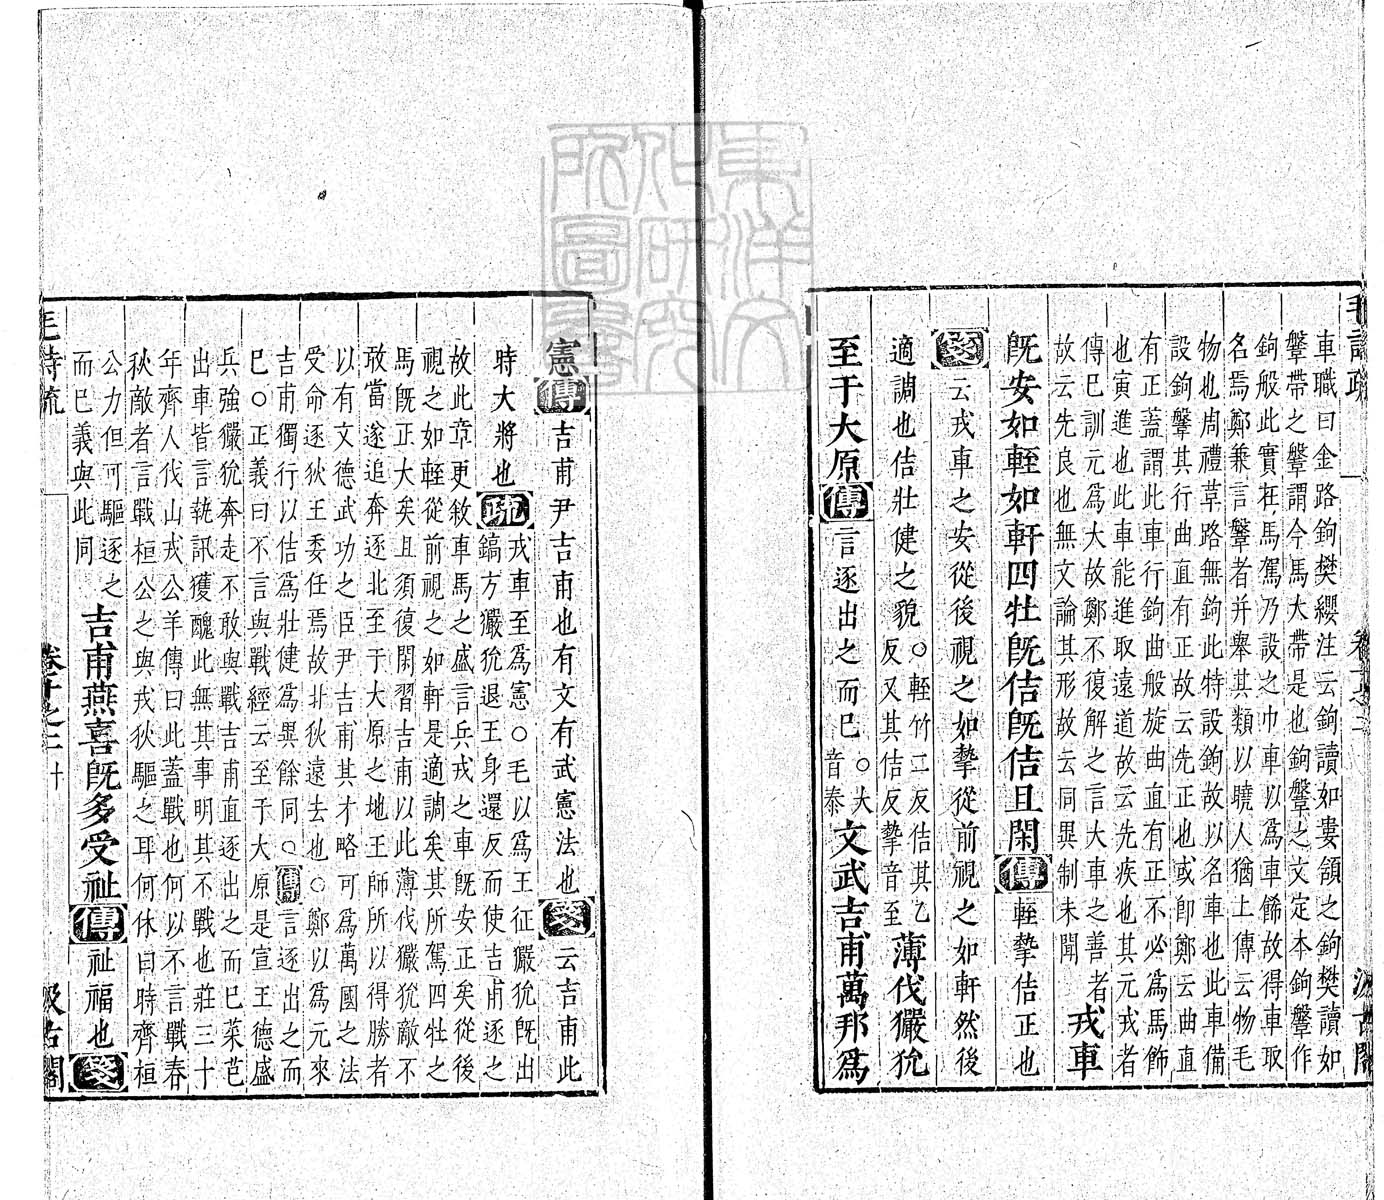 車職曰金路鉤樊纓注云鉤讀如婁頷之鉤樊讀如
鞶帶之鞶謂今馬大帶是也鉤鞶之文定本鉤鞶作
鉤般此實在馬駕乃設之巾車以爲車餙故得車取
名焉鄭兼言鞶者并舉其類以曉人猶上傳云物毛
物也周禮革路無鉤此特設鉤故以名車也此車備
設鉤鞶其行曲直有正故云先正也或卽鄭云曲直
有正蓋謂此車行鉤曲般旋曲直有正不必爲馬飾
也寅進也此車能進取遠道故云先疾也其元戎者
傳巳訓元爲大故鄭不復解之言大車之善者戎車
故云先良也無文論其形故云同異制未聞
旣安如輊如軒四牡旣佶旣佶且閑傳輊摯佶正也
箋云戎車之安從後視之如摯從前視之如軒然後
適調也佶壯健之貌○輊竹二反佶其乙反又其佶反摯音至薄伐玁狁
至于大原傳言逐出之而巳○大音泰文武吉甫萬邦爲
憲傳吉甫尹吉甫也有文有武憲法也箋云吉甫此
時大將也疏戎車至爲憲○毛以爲王征玁狁旣出
鎬方玁狁退王身還反而使吉甫逐之
故此章更敘車馬之盛言兵戎之車旣安正矣從後
視之如輊從前視之如軒是適調矣其所駕四牡之
馬旣正大矣且須復閑習吉甫以此薄伐玁狁敵不
敢當遂追奔逐北至于大原之地王師所以得勝者
以有文德武功之臣尹吉甫其才略可爲萬國之法
受命逐狄王委任焉故北狄遠去也○鄭以爲元來
吉甫獨行以佶爲壯健爲異餘同○傳言逐出之而
巳○正義曰不言與戰經云至于大原是宣王德盛
兵強玁狁奔走不敢與戰吉甫直逐出之而巳采芑
出車皆言執訊獲醜此無其事明其不戰也莊三十
年齊人伐山戎公羊傳曰此蓋戰也何以不言戰春
秋敵者言戰桓公之與戎狄驅之耳何休曰時齊桓
公力但可驅逐之
而巳義與此同吉甫燕喜旣多受祉傳祉福也箋
毛詩疏
卷十之二
十
汲古閣